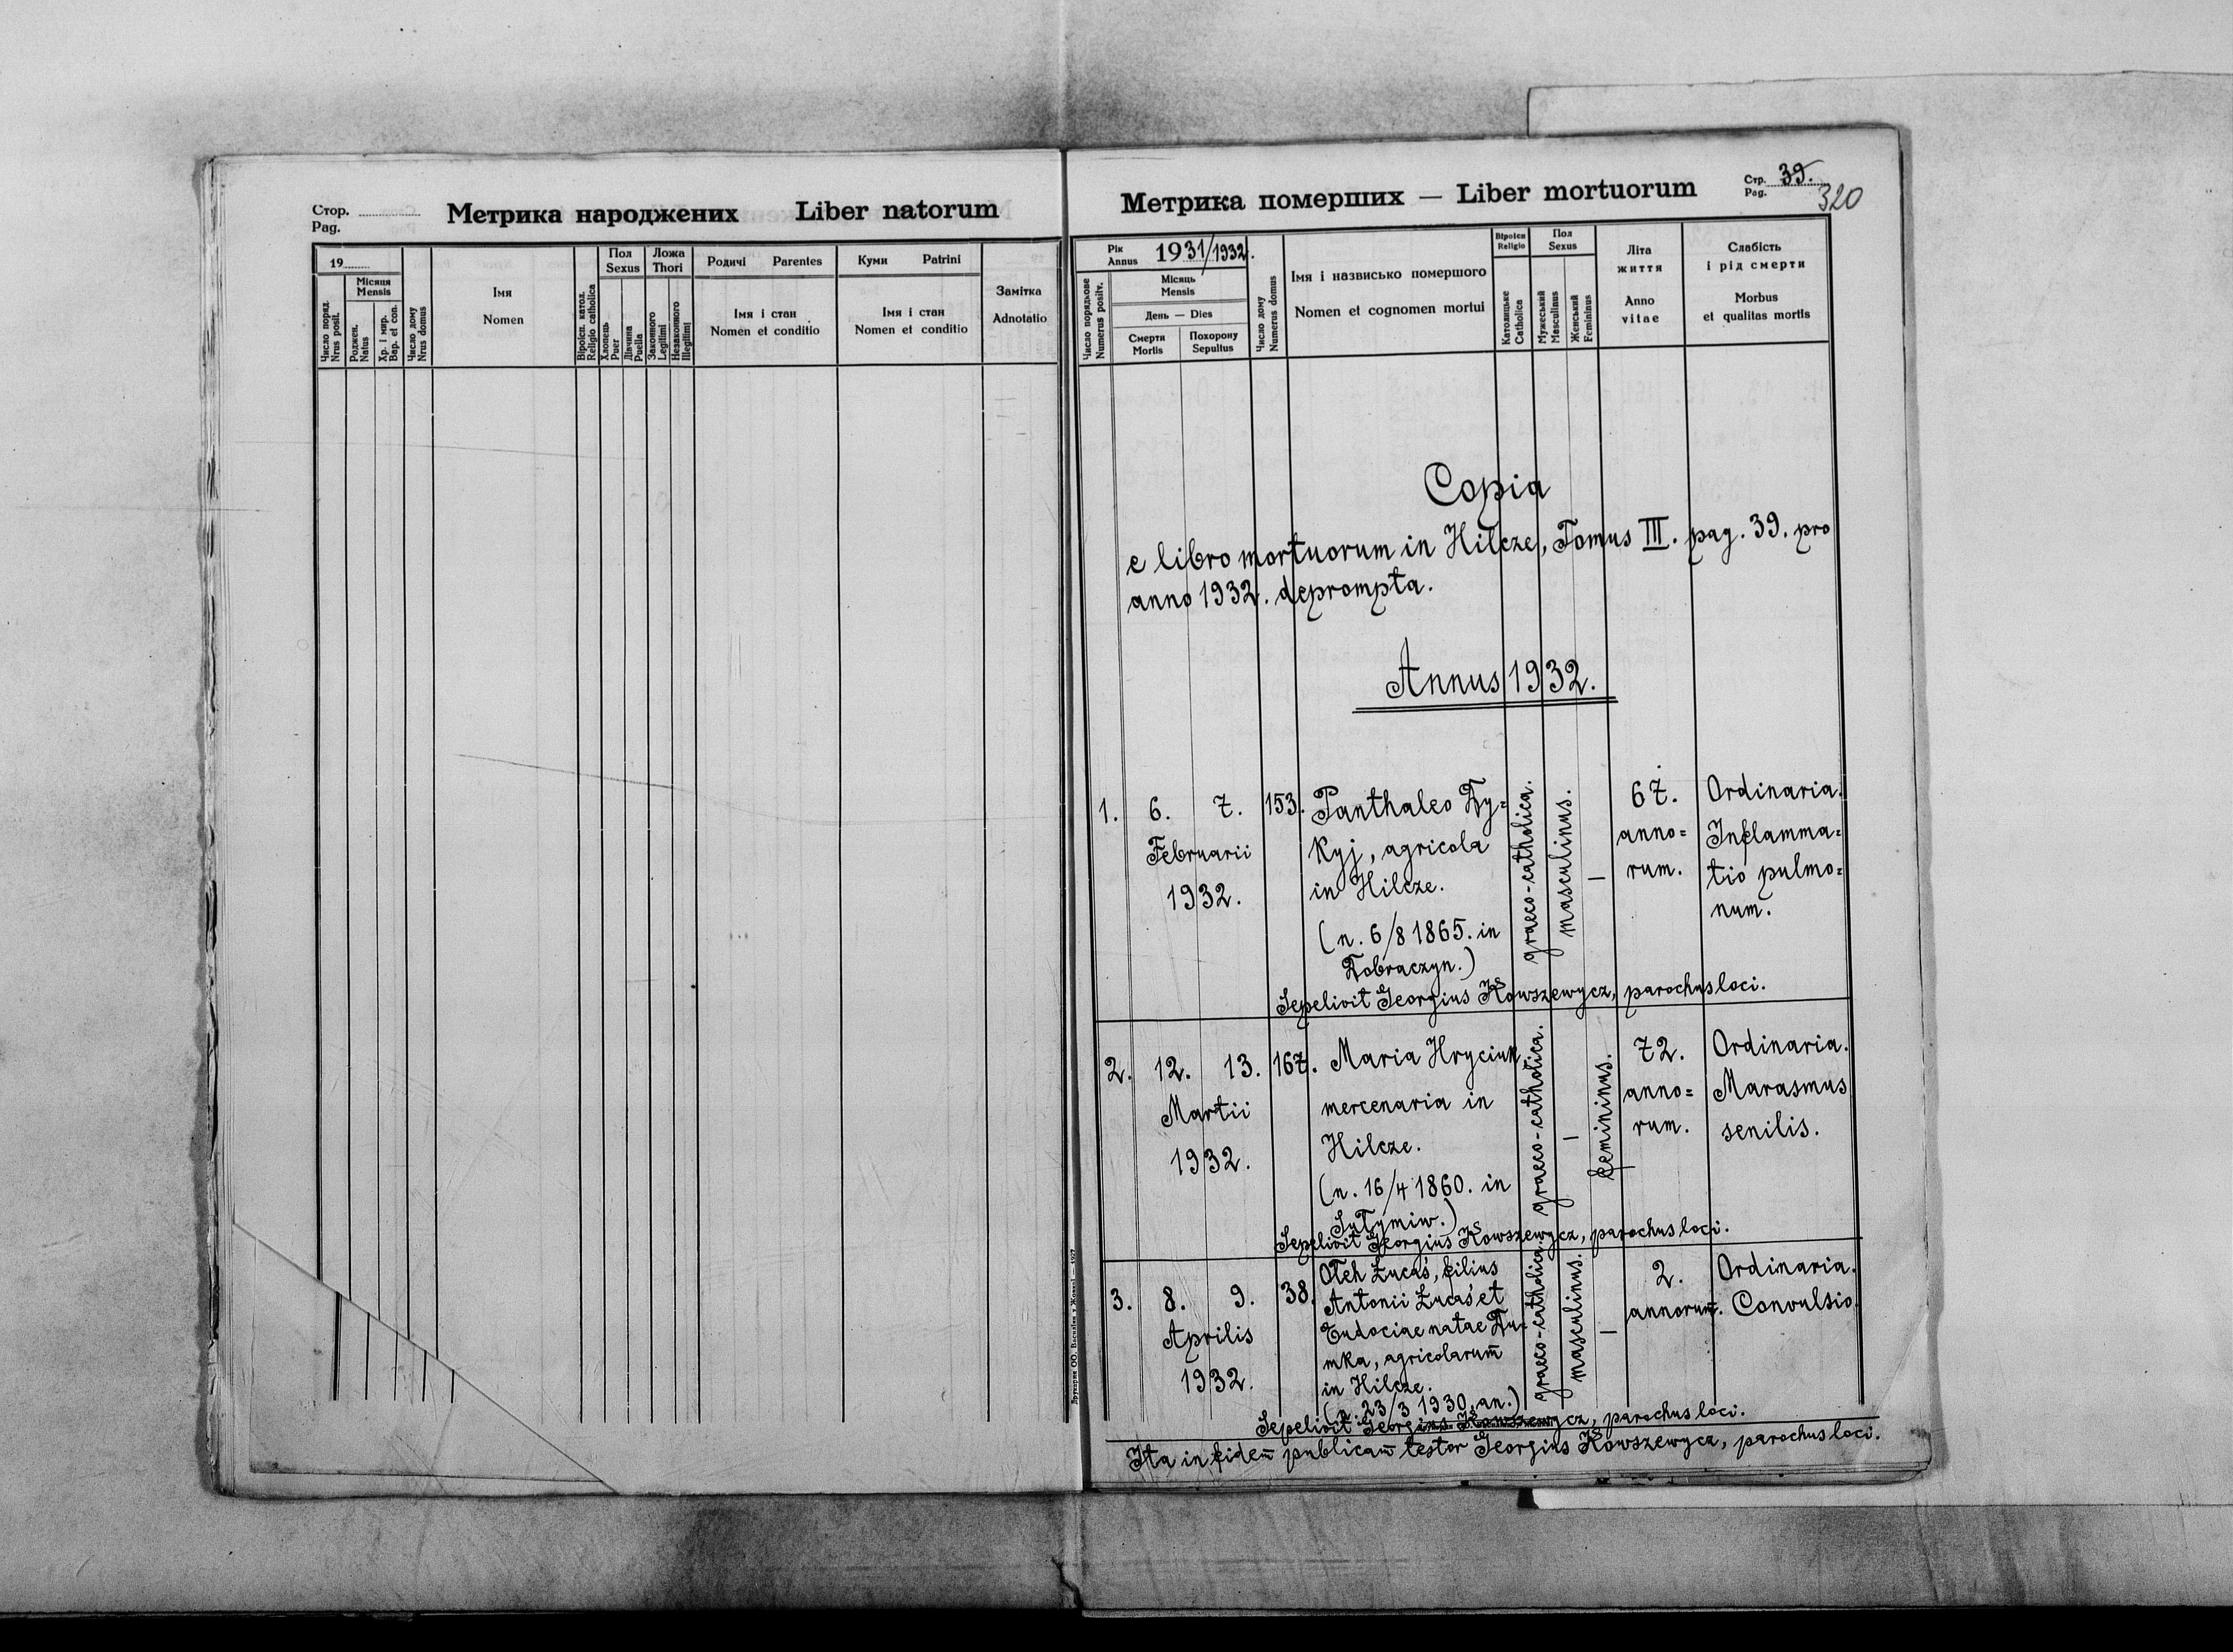 Стор.
Pag.
Метрика народжених Liber natorum
19
Число поряд.
Nrus posit.
Місяця
Mensis
Роджен.
Natus
Хр. і мир.
Bap. et con.
Число дому
Nrus domus
Імя
Nomen
Віроісп. катол.
Religio catholica
Пол
Sexus
Хлопець
Puer
Дівчина
Puella
Ложа
Thori
Законного
Legitimi
Незаконного
Illegitimi
Родичі Parentes
Імя і стан
Nomen et conditio
Куми Patrini
Імя і стан
Nomen et conditio
Замітка
Adnotatio
Метрика померших — Liber mortuorum
Стр.
Pag. 39.
320
Рік
Annus 1931/1932.
Число порядкове
Numerus positv.
Місяць
Mensis
День — Dies
Смерти
Mortis
Похорону
Sepultus
Число дому
Numerus domus
Імя і назвисько помершого
Nomen et cognomen mortui
Віроісп
Religio
Католицьке
Catholica
Пол
Sexus
Мужеський
Masculinus
Женський
Femininus
Літа
життя
Anno
vitae
Слабість
і рід смерти
Morbus
et qualitas mortis
Copia
e libro mortuorum in Hilcze, Tomus III. pag. 39. pro
anno 1932. deprompta.
Annus 1932.
1. 6. 7. 153. Panthaleo Dy=
kyj, agricola
in Hilcze.
(n. 6/8 1865. in
Dobraczyn.)
Februarii
1932.
graeco-catholica.
masculinus.
—
67.
anno=
rum.
Ordinaria.
Inflamma=
tio pulmo=
num.
Sepelivit Georgius Kowszewycz, parochus loci.
2. 12. 13. 167. Maria Hryciuk
mercenaria in
Hilcze.
(n. 16/4 1860. in
Sulymiw.)
Martii
1932.
graeco-catholica.
—
femininus.
72.
anno=
rum.
Ordinaria.
Marasmus
senilis.
Sepelivit Georgius Kowszewycz, parochus loci.
3. 8. 9. 38. Oleh Łucaś, filius
Antonii Łucaś et
Eudociae natae Du-
mka, agricolarum̄
in Hilcze.
(n. 23/3 1930. an.)
Aprilis
1932.
graeco-catholica.
masculinus.
—
2.
annorum̄.
Ordinaria.
Convulsio.
Sepelivit Georgius Kowszewycz, parochus loci.
Ita in fidem̄ publicam̄ testor Georgius Kowszewycz, parochus loci.